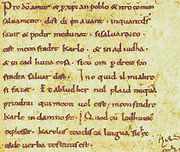 Pro dõ amur & p xpian poblo & nr̃o comun
saluament. dist di en auant. inquant dš
sauir & podir me dunat. si saluarai eo
cist meon fradre Karlo. & in ad iudha
& in cad huna cosa. sicū om p dreit son
fradra saluar dist. In o quid il mi altre
si faz&. Et ab ludher nul plaid nūquā
prindrai qui meon uol cist meon fradre
Karle in damno sit. Quod cū lodhuuic
explesset. karolus teudisca lingua sic hęc
eadē uerba testatus est.